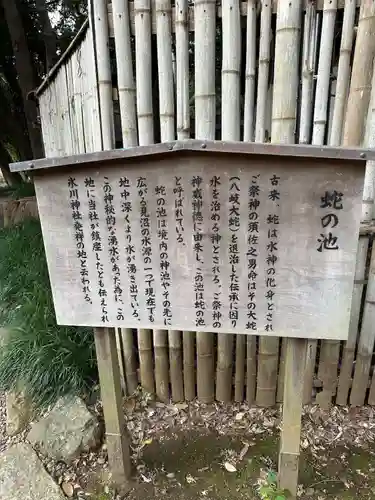 蛇の池
古来、蛇は水神の化身とされ
ご祭神の須佐之男命はその大蛇
（八岐大蛇）を退治した伝承に因り
水を治める神とされる。ご祭神の
神裏神徳に由来し、この池は蛇の池
と呼ばれている。
蛇の池は境内の神池やその先に
広がる見沼の水源の一つで現在でも
地中深くより水が湧き出ている。
この神秘的な湧水があった為に、この
地に当社が鎮座したとも伝えられ
氷川神社発祥の地と云われる。